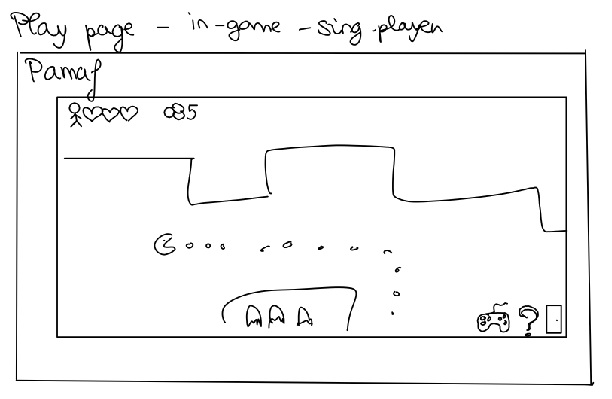 Play page - in-game - sing.player
Pamaf
085
?